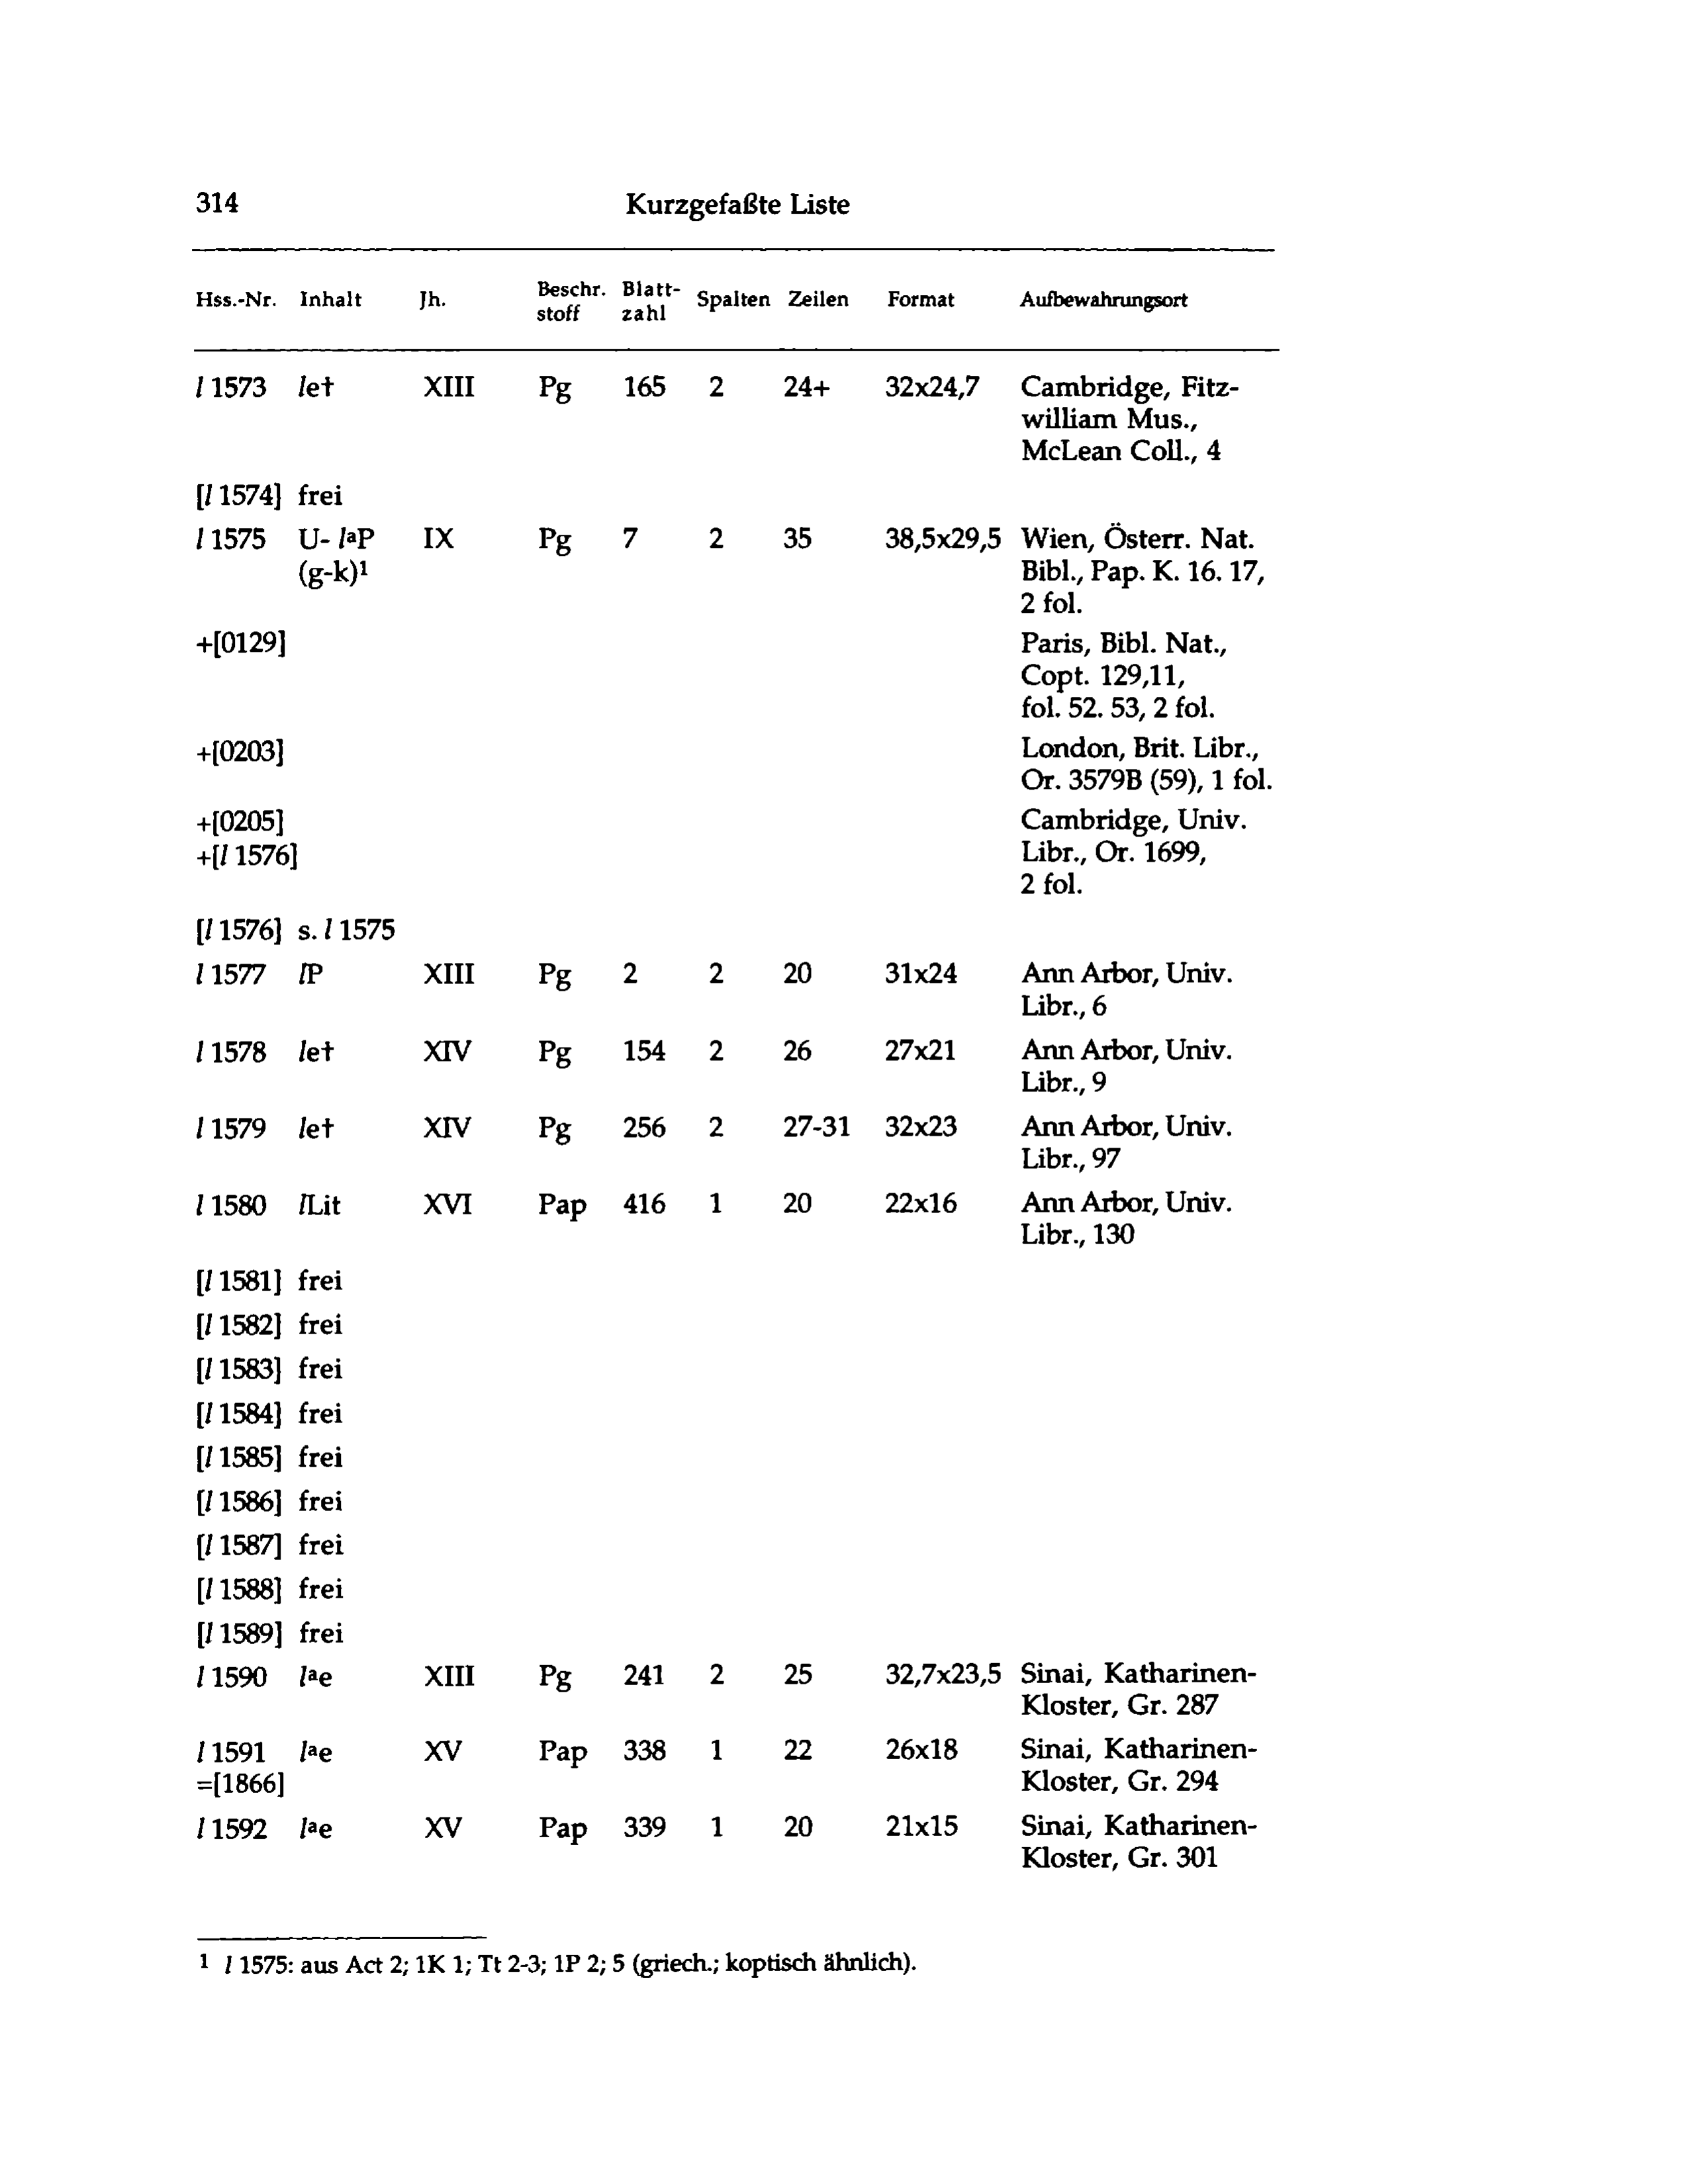 314 Kurzgefaßte Liste
Hss.-Nr. Inhalt Jh. Beschr. stoff Blatt- zahl Spalten Zeilen Format Aufbewahrungsort
l 1573 le† XIII Pg 165 2 24+ 32x24,7 Cambridge, Fitz-
william Mus.,
McLean Coll., 4
[l 1574] frei
l 1575 U- lᵃP IX Pg 7 2 35 38,5x29,5 Wien, Österr. Nat.
(g-k)¹ Bibl., Pap. K. 16. 17,
2 fol.
+[0129] Paris, Bibl. Nat.,
Copt. 129,11,
fol. 52. 53, 2 fol.
+[0203] London, Brit. Libr.,
Or. 3579B (59), 1 fol.
+[0205] Cambridge, Univ.
+[l 1576] Libr., Or. 1699,
2 fol.
[l 1576] s. l 1575
l 1577 lP XIII Pg 2 2 20 31x24 Ann Arbor, Univ.
Libr., 6
l 1578 le† XIV Pg 154 2 26 27x21 Ann Arbor, Univ.
Libr., 9
l 1579 le† XIV Pg 256 2 27-31 32x23 Ann Arbor, Univ.
Libr., 97
l 1580 lLit XVI Pap 416 1 20 22x16 Ann Arbor, Univ.
Libr., 130
[l 1581] frei
[l 1582] frei
[l 1583] frei
[l 1584] frei
[l 1585] frei
[l 1586] frei
[l 1587] frei
[l 1588] frei
[l 1589] frei
l 1590 lᵃe XIII Pg 241 2 25 32,7x23,5 Sinai, Katharinen-
Kloster, Gr. 287
l 1591 lᵃe XV Pap 338 1 22 26x18 Sinai, Katharinen-
=[1866] Kloster, Gr. 294
l 1592 lᵃe XV Pap 339 1 20 21x15 Sinai, Katharinen-
Kloster, Gr. 301
¹ l 1575: aus Act 2; 1K 1; Tt 2-3; 1P 2; 5 (griech.; koptisch ähnlich).